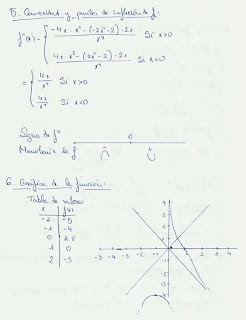 5. Convexidad y puntos de inflexión de f:
f''(x) = { -4x · x² - (-2x² - 2) · 2x / x⁴ Si x>0
4x · x² - (2x² - 2) · 2x / x⁴ Si x<0
= { 4x / x⁴ Si x>0
4x / x⁴ Si x<0
Signo de f'' 0
Monotonía de f ∩ ∪
6. Gráfica de la función:
Tabla de valores
x f(x)
-2 -5
-1 -4
0 A.V.
1 0
2 -3
4
-5 -4 -3 -2 -1 1 2 3 4